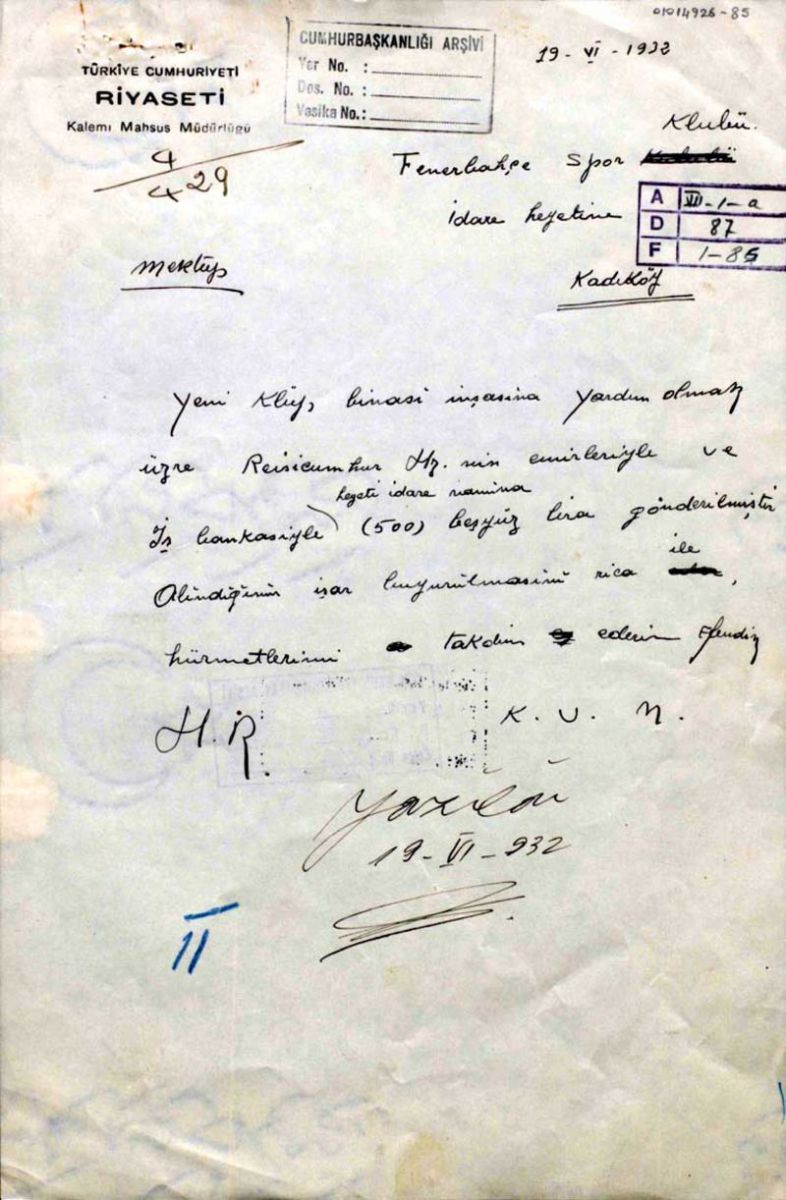 01014926-85
TÜRKİYE CUMHURİYETİ
RİYASETİ
Kalemi Mahsus Müdürlüğü
CUMHURBAŞKANLIĞI ARŞİVİ
Yer No. :
Dos. No. :
Vesika No.:
19-VI-1932
4/429
Klubü.
Fenerbahçe Spor
idare heyetine
A VII-1-a
D 87
F 1-85
Mektup
Kadıköy
Yeni Klüp binasi inşasina yardım olmak
üzre Reisicumhur Hz.nin emirleriyle ve
heyeti idare namina
İş bankasiyle (500) beşyüz lira gönderilmiştir
ile
Alindiğinin işar buyurulmasini rica
hürmetlerimi takdim ederim Efendim
H.R. K.U.M.
Yazıldı
19-VI-932
II